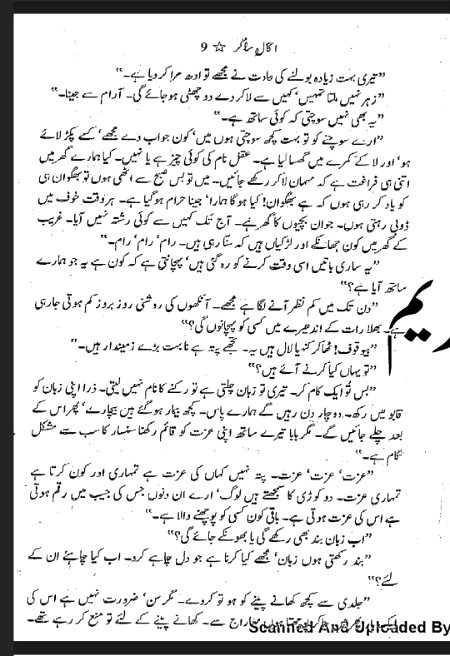 اکال ساگر ☆ 9
”تیری بہت زیادہ بولنے کی عادت نے مجھے تو ادھ مرا کر دیا ہے۔“
”زہر نہیں ملتا تمہیں‘ کہیں سے لا کر دے دو چھٹی ہو جائے گی۔ آرام سے جینا۔“
”یہ بھی نہیں سوچتی کہ کوئی ساتھ ہے۔“
”ارے سوچنے کو تو بہت کچھ سوچتی ہوں میں‘ کون جواب دے مجھے‘ کسے پکڑ لائے
ہو‘ اور لا کے کمرے میں گھسا لیا ہے۔ عقل نام کی کوئی چیز ہے یا نہیں۔ کیا ہمارے گھر میں
اتنی ہی فراغت ہے کہ مہمان لا کر رکھے جائیں۔ میں تو بس صبح سے اٹھی ہوں تو بھگوان ہی
کو یاد کر رہی ہوں کہ ہے بھگوان! کیا ہو گا ہمارا‘ جینا حرام ہو گیا ہے۔ ہر وقت خوف میں
ڈوبی رہتی ہوں۔ جوان بچیوں کا گھر ہے۔ آج تک کہیں سے کوئی رشتہ نہیں آیا۔ غریب
کے گھر میں کون جھانکے اور لڑکیاں ہیں کہ سنا رہی ہیں۔ رام‘ رام‘ رام۔“
”یہ ساری باتیں اسی وقت کرنے کو رہ گئی ہیں‘ پہچانتی ہے کہ کون ہے یہ جو ہمارے
ساتھ آیا ہے؟“
”دن تک میں کم نظر آنے لگا ہے مجھے۔ آنکھوں کی روشنی روز بروز کم ہوتی جا رہی
ہے۔ بھلا رات کے اندھیرے میں کسی کو پہچانوں گی؟“
”بیوقوف! ٹھاکر کنہیا لال ہیں یہ۔ تجھے پتہ ہے نا بہت بڑے زمیندار ہیں۔“
”تو یہاں کیا کرنے آئے ہیں؟“
”بس تو ایک کام کر۔ تیری تو زبان چلتی ہے تو رکنے کا نام نہیں لیتی۔ ذرا اپنی زبان کو
قابو میں رکھ۔ دو چار دن رہیں گے ہمارے پاس۔ کچھ بیمار ہو گئے ہیں بیچارے‘ پھر اس کے
بعد چلے جائیں گے۔ مگر بابا تیرے ساتھ اپنی عزت کو قائم رکھنا سنسار کا سب سے مشکل
کام ہے۔“
”عزت‘ عزت‘ عزت۔ پتہ نہیں کہاں کی عزت ہے تمہاری اور کون کرتا ہے
تمہاری عزت۔ دو کوڑی کا سمجھتے ہیں لوگ‘ ارے ان دنوں جس کی جیب میں رقم ہوتی
ہے اس کی عزت ہوتی ہے۔ باقی کون کسی کو پوچھنے والا ہے۔“
”اب زبان بند بھی رکھے گی یا بھونکے جائے گی؟“
”بند رکھتی ہوں زبان‘ مجھے کیا کرنا ہے جو دل چاہے کرو۔ اب کیا چاہئے ان کے
لئے؟“
”جلدی سے کچھ کھانے پینے کو ہو تو کر دے۔ مگر سن‘ ضرورت نہیں ہے اس کی
مہاراج سے۔ کھانے پینے کے لئے تو منع کر رہے تھے۔
Scanned And Uploaded By